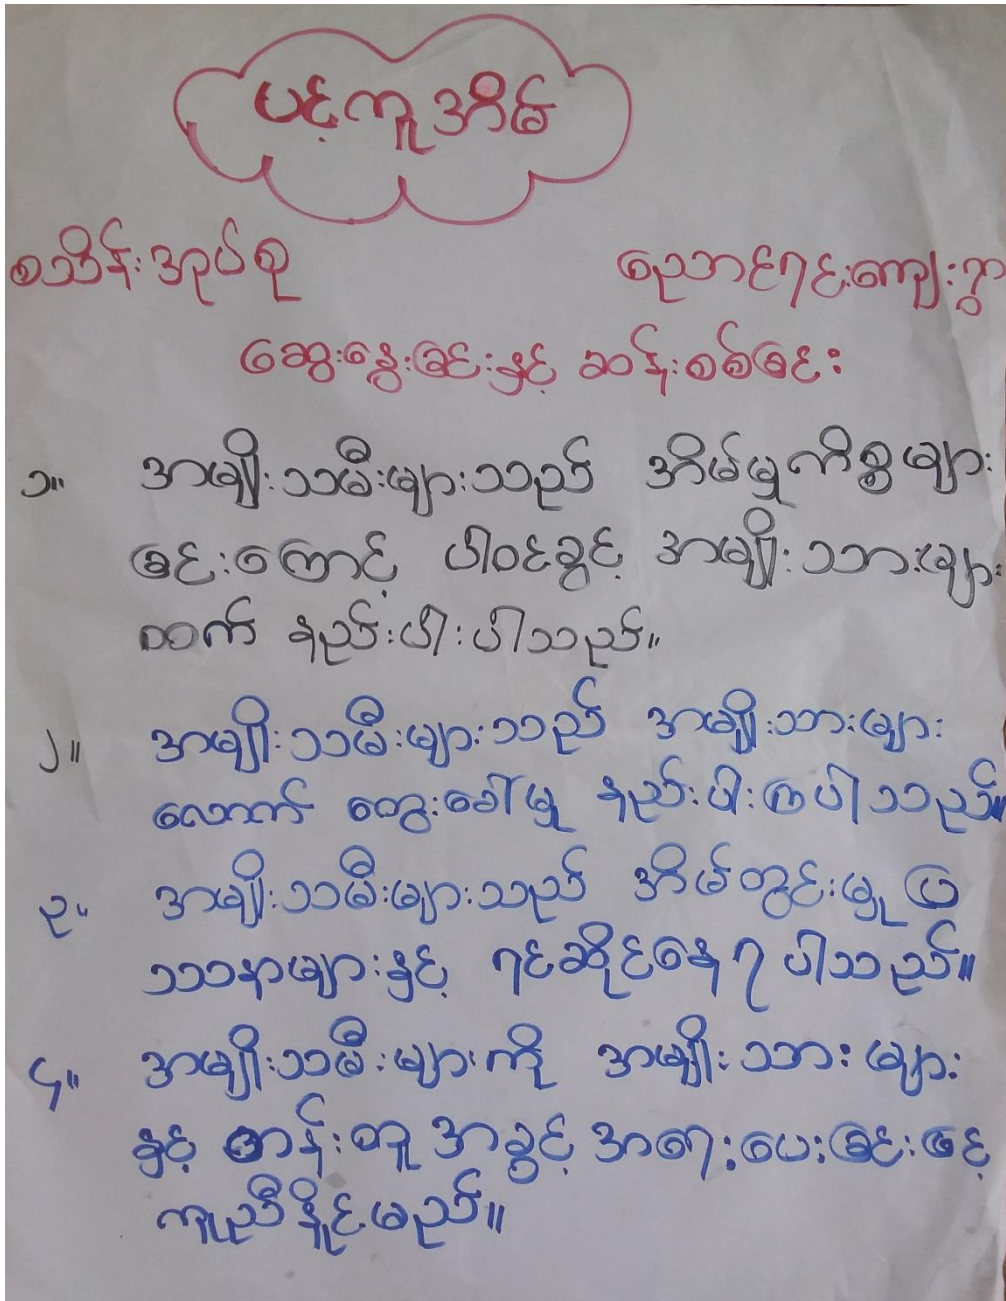 ပင့်ကူအိမ်
စသိန်းအုပ်စု ညောင်ရင်းကျေးရွာ
ဆွေးနွေးခြင်းနှင့် ဆန်းစစ်ခြင်း
၁။ အမျိုးသမီးများသည် အိမ်မှုကိစ္စများ
ခြင်းကြောင့် ပါဝင်ခွင့် အမျိုးသားများ
ထက် နည်းပါးပါသည်။
၂။ အမျိုးသမီးများသည် အမျိုးသားများ
လောက် တွေးခေါ်မှု နည်းပါးကြပါသည်။
၃။ အမျိုးသမီးများသည် အိမ်တွင်းမှု ပြ
ဿနာများနှင့် ရင်ဆိုင်နေရပါသည်။
၄။ အမျိုးသမီးများကို အမျိုးသားများ
နှင့် တန်းတူ အခွင့် အရေးပေးခြင်းဖြင့်
ကူညီနိုင်မည်။